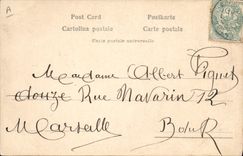 A
Post Card Postkarte
Cartolina postale Carte postale
Carte postale universelle
Madame Albert Piquet
douze Rue Navarin 12
Marseille B du R